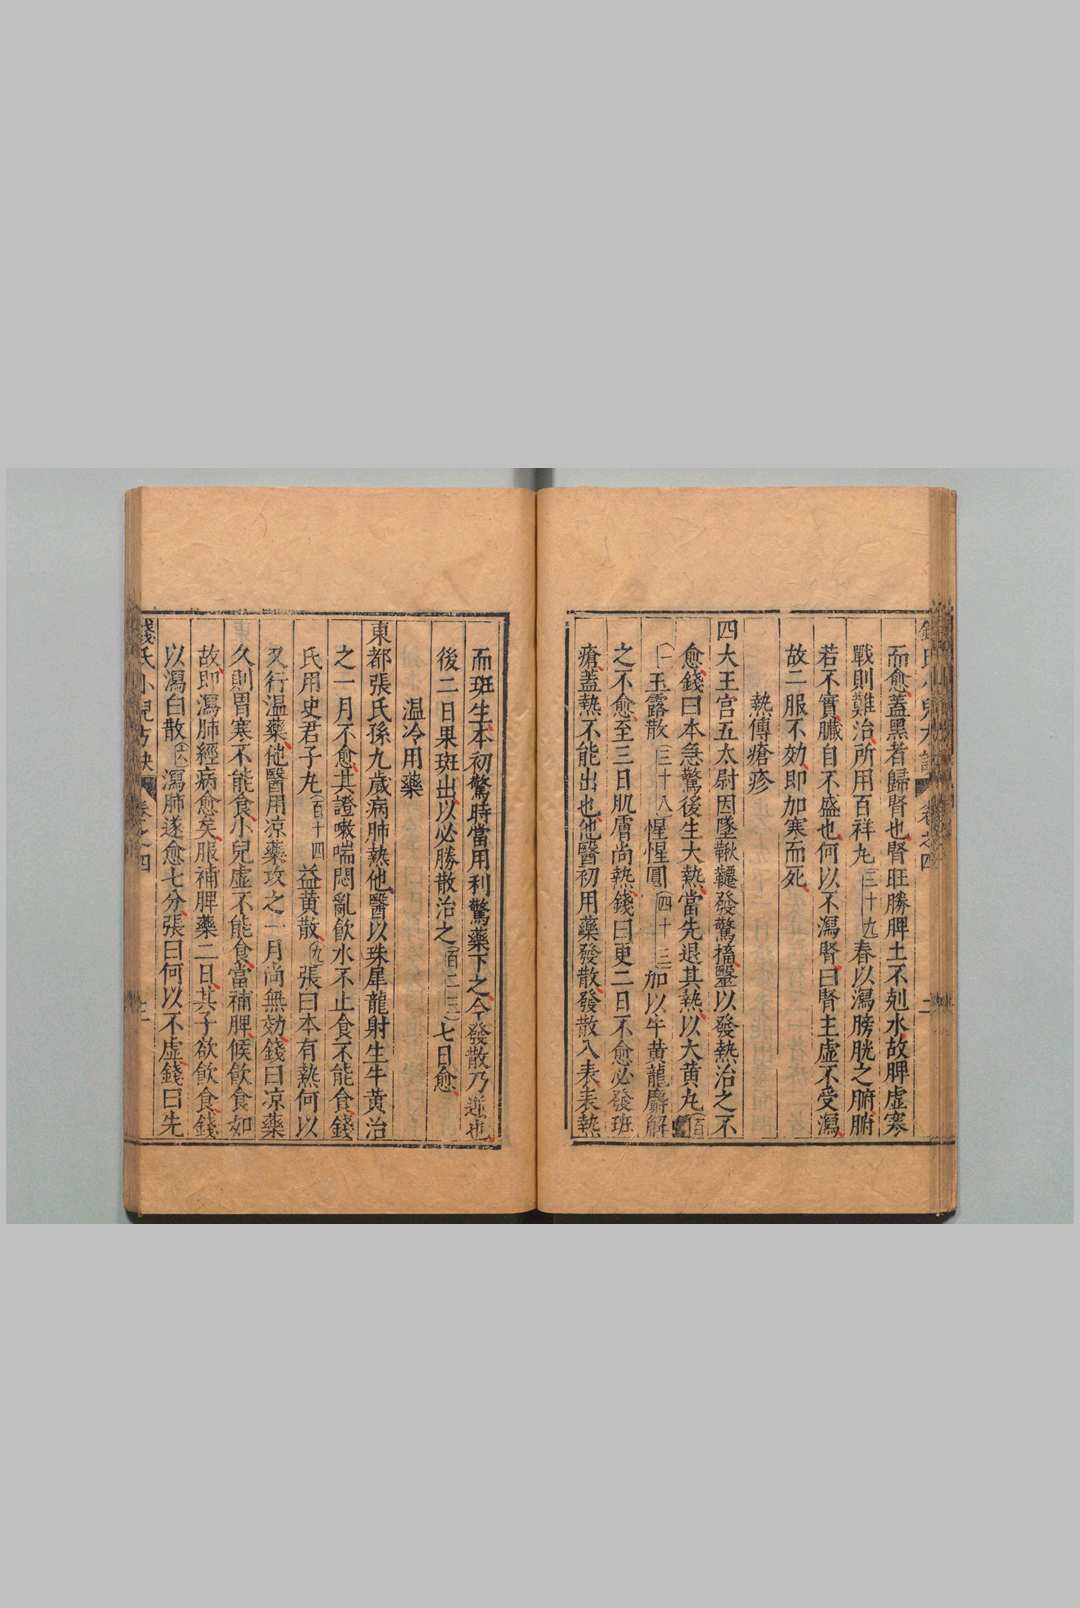 而愈蓋黑者歸腎也腎旺勝脾土不剋水故脾虛寒
戰則難治所用百祥丸三十九春以瀉膀胱之腑腑
若不實臟自不盛也何以不瀉腎曰腎主虛不受瀉
故二服不効即加寒而死
熱傳瘡疹
四大王宫五太尉因墜鞦韆發驚搐醫以發熱治之不
愈錢曰本急驚後生大熱當先退其熱以大黄丸一百
一玉露散三十八惺惺圓四十三加以牛黄龍麝解
之不愈至三日肌膚尚熱錢曰更二日不愈必發班
瘡蓋熱不能出也他醫初用藥發散發散入表表熱
而班生本初驚時當用利驚藥下之今發散乃逆也
後二日果班出以必勝散治之七日愈
温冷用藥
東都張氏孫九歲病肺熱他醫以珠犀龍射生牛黄治
之一月不愈其證嗽喘悶亂飲水不止食不能食錢
氏用史君子丸百十四益黄散九張曰本有熱何以
又行温藥他醫用凉藥攻之一月尚無効錢曰凉藥
久則胃寒不能食小兒虛不能食當補脾候飲食如
故即瀉肺經病愈矣服補脾藥二日其子欲飲食錢
以瀉白散瀉肺遂愈七分張曰何以不虛錢曰先
錢氏小兒方訣 卷之四